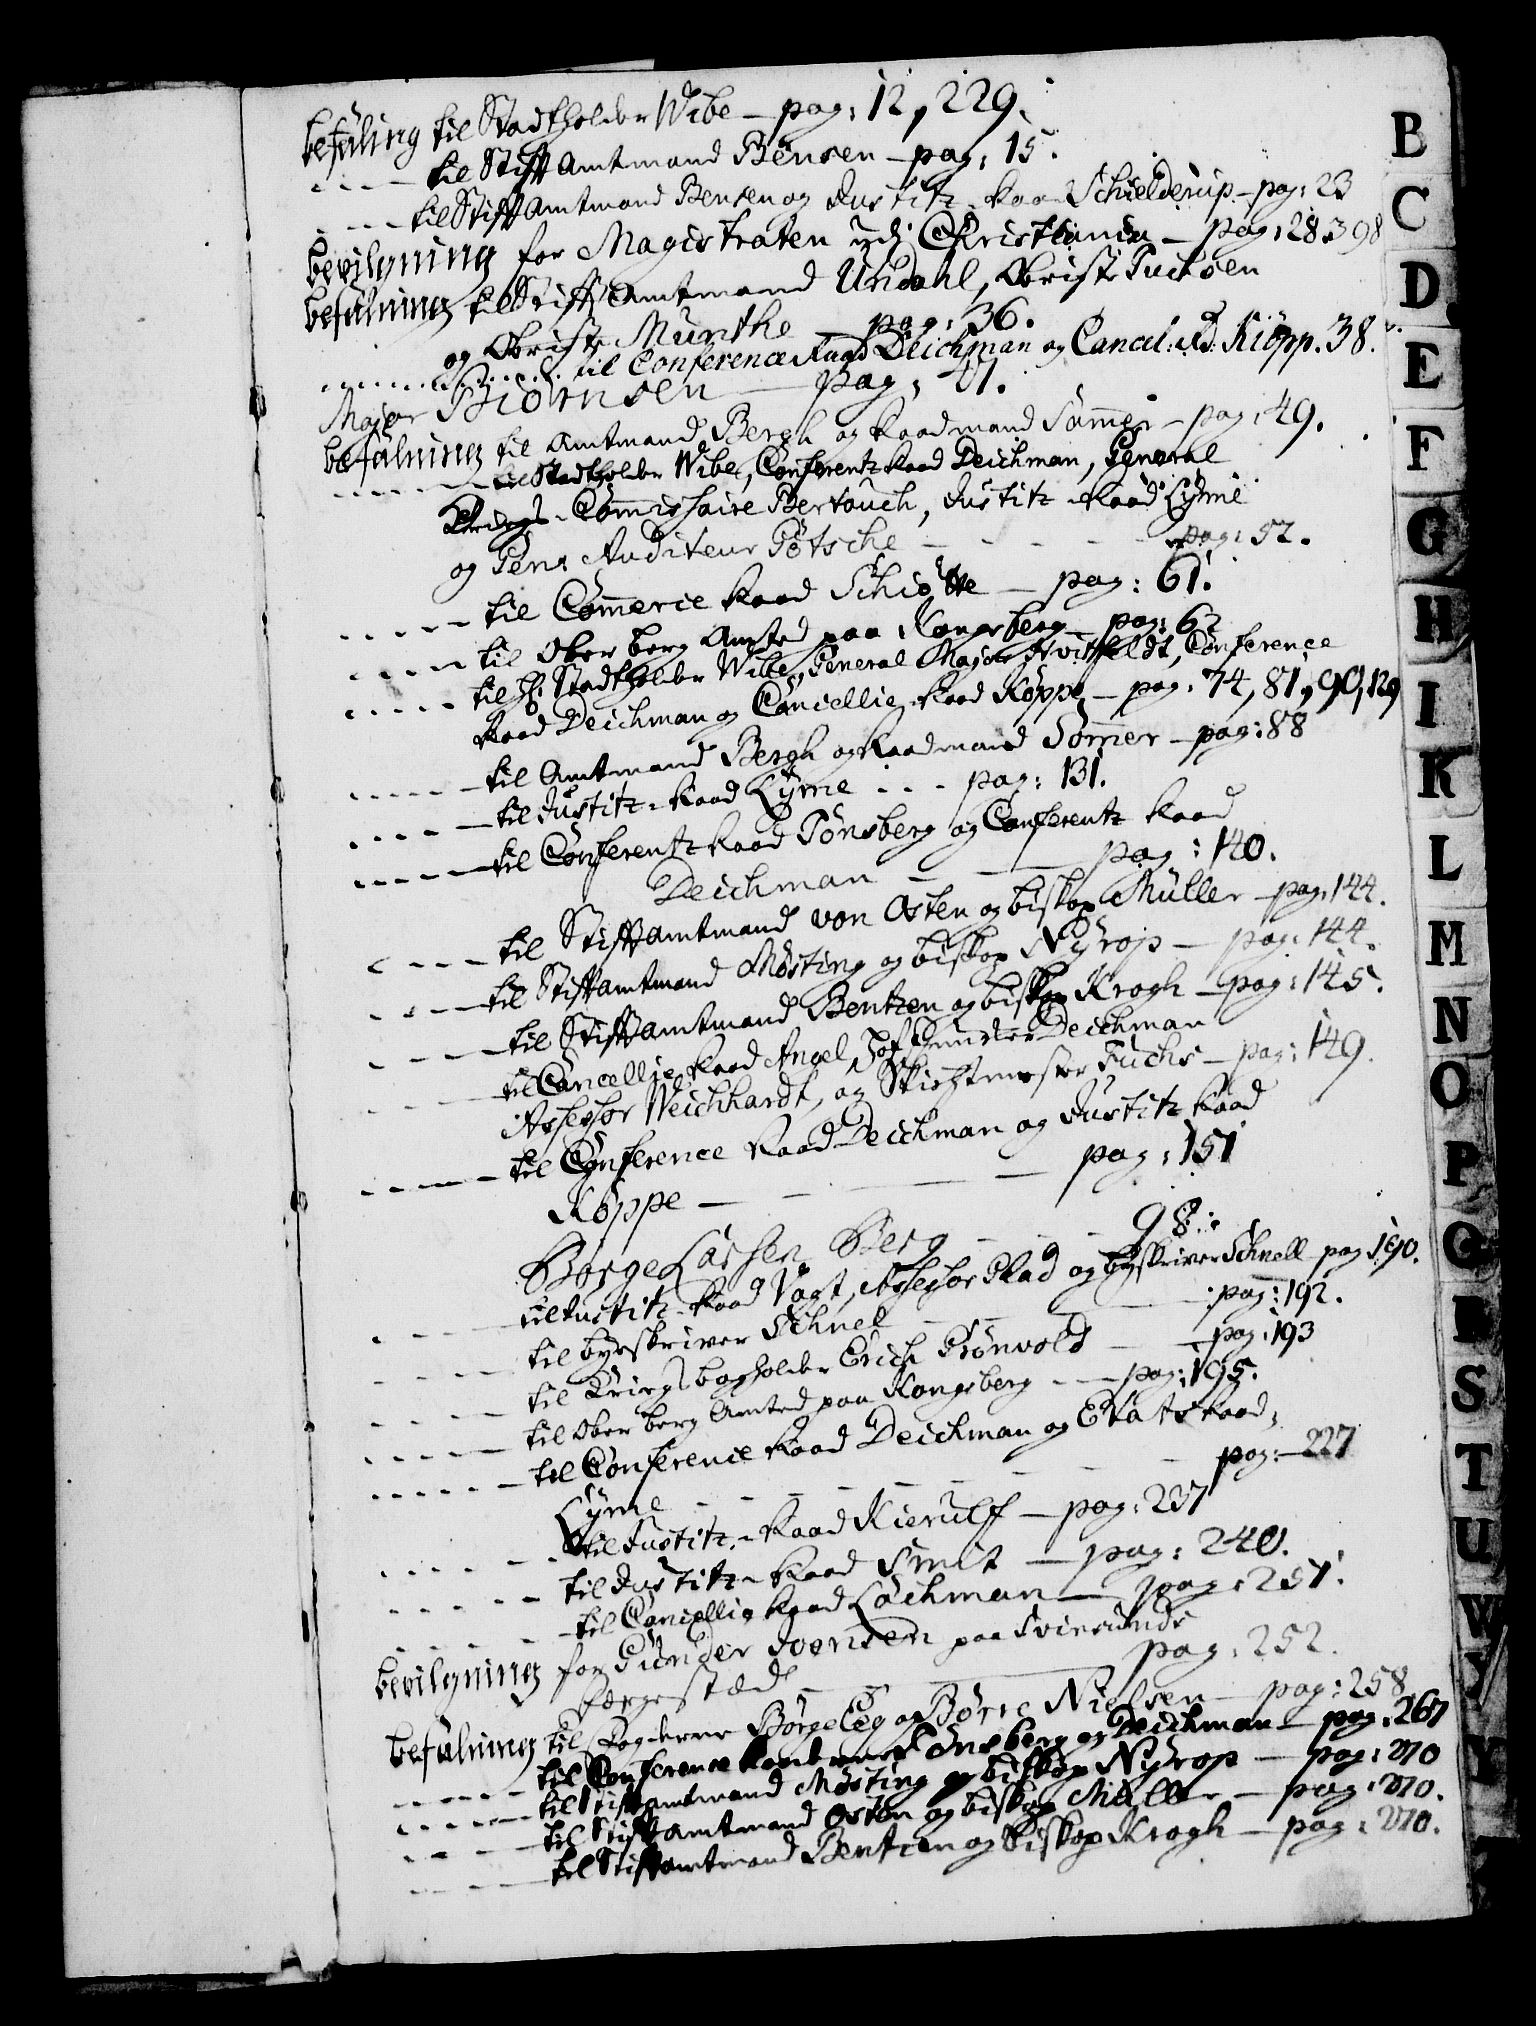 befaling til Stadtholder Wibe - pag: 12, 229.
- - - - til Stifft Amtmand Bensen - pag: 15.
- - - - til Stifft Amtmand Bensen og Justitz-Raad Schielderup - pag: 23
bevilgning for Magistraten udj Christiania - pag: 28. 398
befalning til Stiff Amtmand Undahl, Obriste Tuchsen
og Obriste Munthe - pag: 36.
- - - - til Conference Raad Deichman og Cancel: Rd: Kiöpp. 38.
Major Biörnsen - pag: 41.
befalning til Amtmand Bergh og Raadmand Sommer - pag: 49.
- - - - til Stadtholder Wibe, Conferentz Raad Deichman, General
Krigs-Commissaire Bertouch, Justitz-Raad Lyme
og Gen: Auditeur Götsche - - - - pag: 52.
- - - - til Commerce Raad Schiøtte - pag: 61.
- - - - til Ober berg Amted paa Kongsberg - pag: 62
- - - - til H: Stadtholder Wibe, General Major Hvitfeldt, Conference
Raad Deichman og Cancellie-Raad Köppe - pag: 74, 81, 90, 129
- - - - til Amtmand Bergh og Raadmand Sommer - pag: 88
- - - - til Justitz-Raad Lyme - - - pag: 131.
- - - - til Conferentz Raad Tønsberg og Conferentz Raad
Deichman - - - pag: 140.
- - - - til Stifftamtmand von Osten og biskop Müller - pag: 144.
- - - - til Stifftamtmand Mösting og biskop Nyrop - pag: 144.
- - - - til Stifftamtmand Bentzen og biskop Krogh - pag: 145.
- - - - til Cancellie Raad Angel, Hof Junker Deichman
Assessor Weichhardt, og Skichtmester Fuchs - pag: 149.
- - - - til Conference Raad Deichman og Justitz Raad
Köppe - - - pag: 151
Børge Lassen Berg - - - 98.
- - - - til Justitz-Raad Vogt, Assessor Plad og byskriver Schnell pag 190.
- - - - til byeskriver Schnel - - - pag: 192.
- - - - til Krigs bogholder Erich Grönvold - pag: 193
- - - - til Ober berg Amted paa Kongsberg - - pag: 195.
- - - - til Conference Raad Deichman og Etats Raad
Lyme - - - - - - pag: 227
- - - - til Justitz-Raad Kierulf - pag: 237
- - - - til Justitz-Raad Smit - pag: 240.
- - - - til Cancellie Raad Lachman - pag: 251.
bevilgning for Gunder Svensen paa Svinesunds
færgestæd - - pag: 252.
befalning til Fogderne Börge Leg og Börre Nielsen - pag: 258
- - - - til Conference Raaderne Tönsberg og Deichman - pag: 267
- - - - til Stiftamtmand Mösting og biskop Nyrop - pag: 270
- - - - til Stifftamtmand Osten og biskop Müller - pag: 270.
- - - - til Stifftamtmand Bentzen og Biskop Krogh - pag: 270.
B
C
D
E
F
G
H
I
K
L
M
N
O
P
Q
R
S
T
U
W
Y